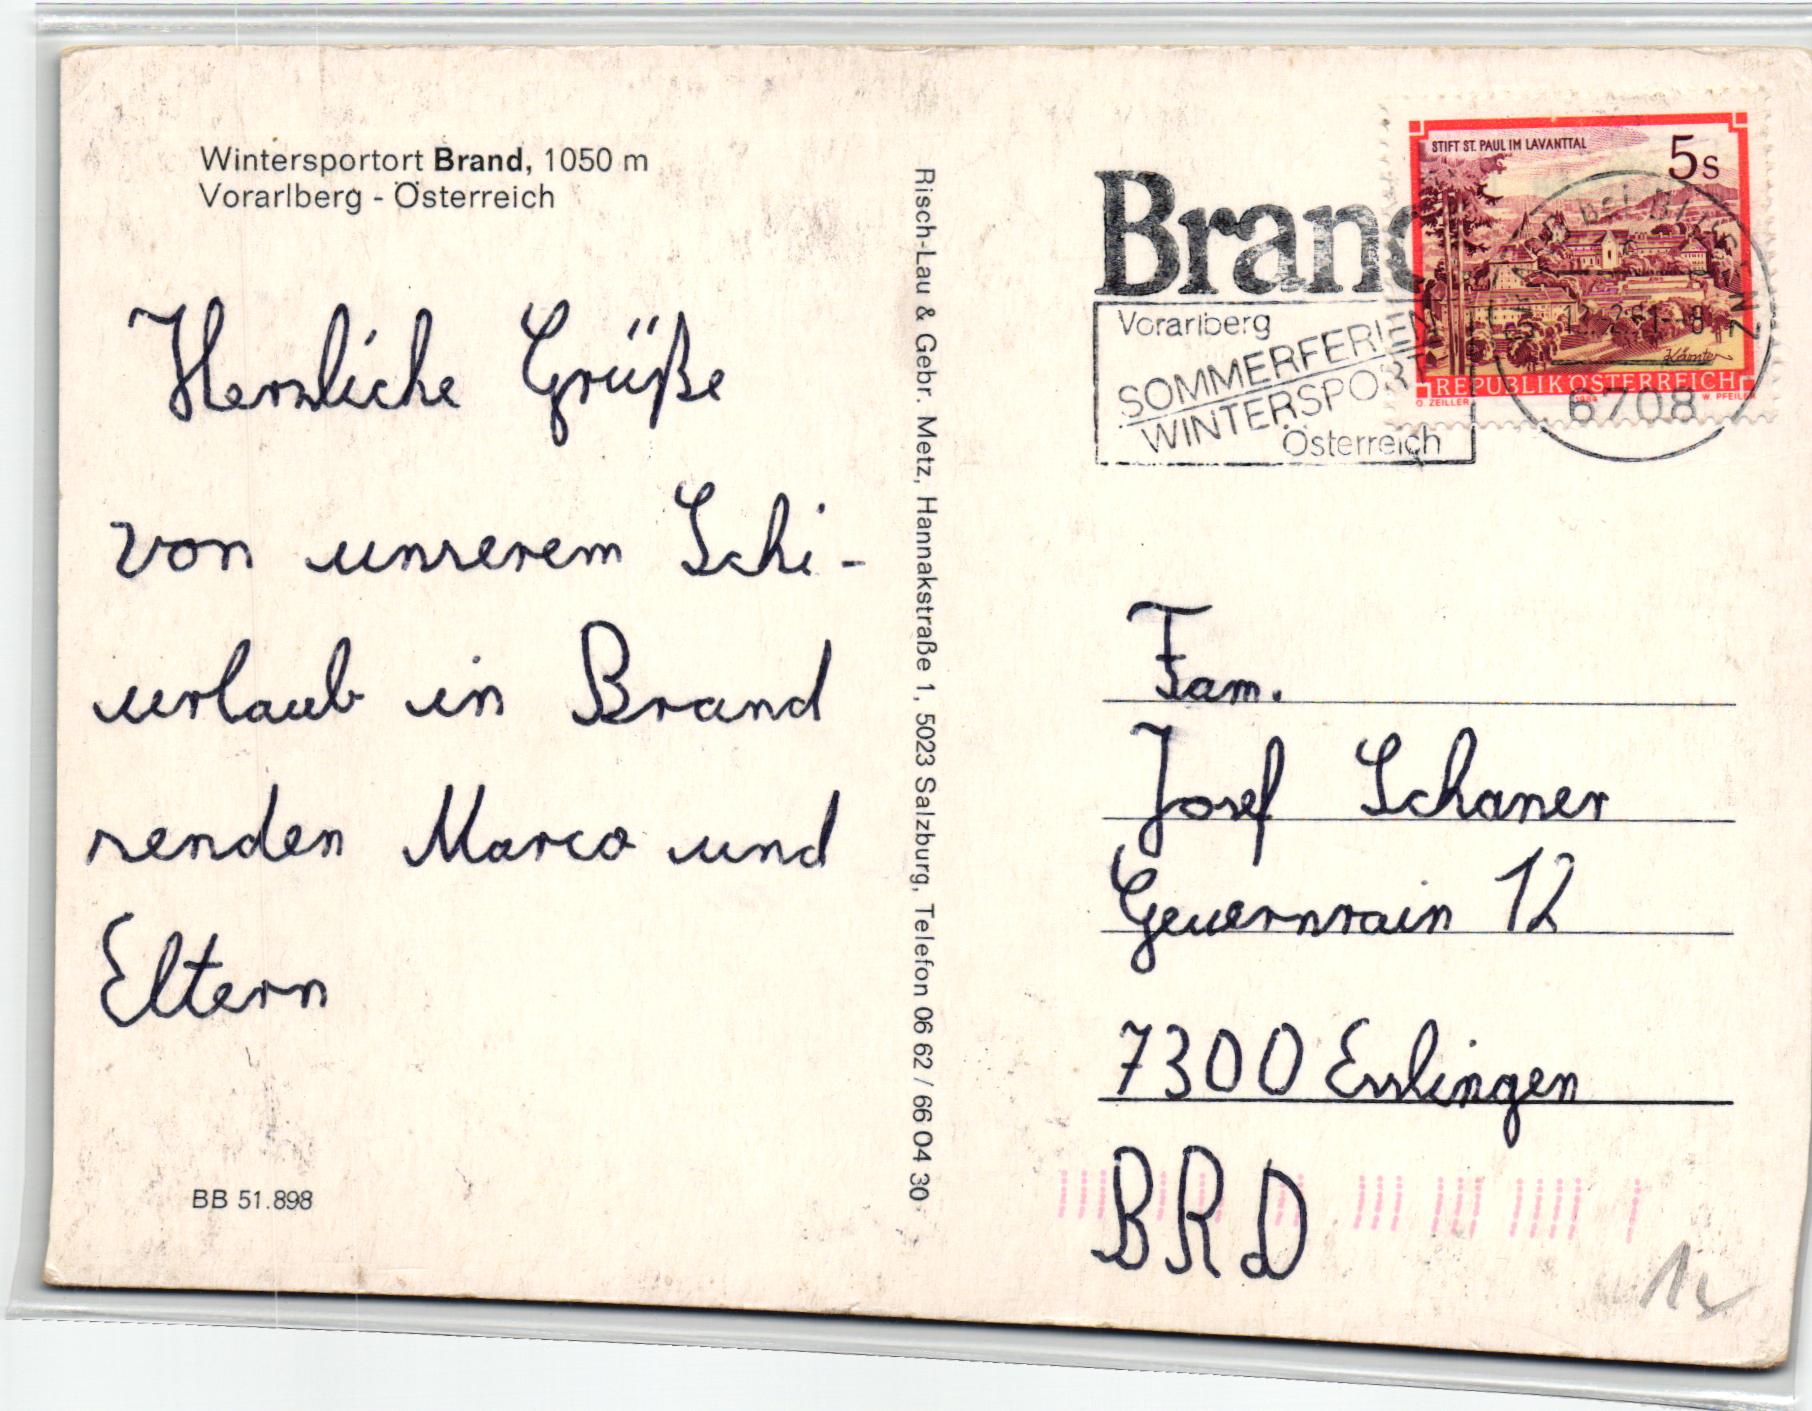 Wintersportort Brand, 1050 m
Vorarlberg - Österreich
Herzliche Grüße
von unserem Schi-
urlaub in Brand
senden Marco und
Eltern
BB 51.898
Risch-Lau & Gebr. Metz, Hannakstraße 1, 5023 Salzburg, Telefon 06 62 / 66 04 30
Brand
Vorarlberg
SOMMERFERIEN
WINTERSPORT
Österreich
STIFT ST. PAUL IM LAVANTTAL
5s
Kärnten
REPUBLIK ÖSTERREICH
O. ZEILLER 1984 W. PFEILER
bei BLUDENZ
6708
Fam.
Josef Schaner
Geuernrain 12
7300 Esslingen
BRD